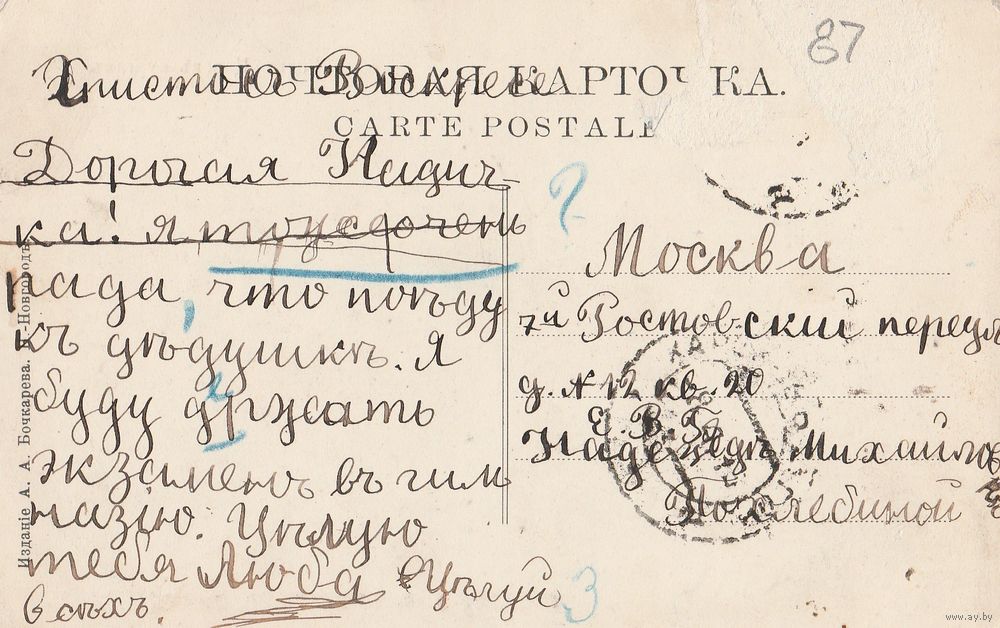 87
Христосъ Воскресе
ПОЧТОВАЯ КАРТОЧКА.
CARTE POSTALE
Дорогая Надич-
ка! я тоже очень
рада, что поѣду
къ дѣдушкѣ. я
буду држать
экзаменъ въ гим
назію. Цѣлую
тебя Люба Цѣлуй
всѣхъ.
?
2
3
Москва
7й Ростовский переул
д. № 12 кв. 20
Е. В. Б.
Надеждѣ Михайлов
Похлебиной
Изданіе А. А. Бочкарева. Н.-Новгородъ
www.ay.by